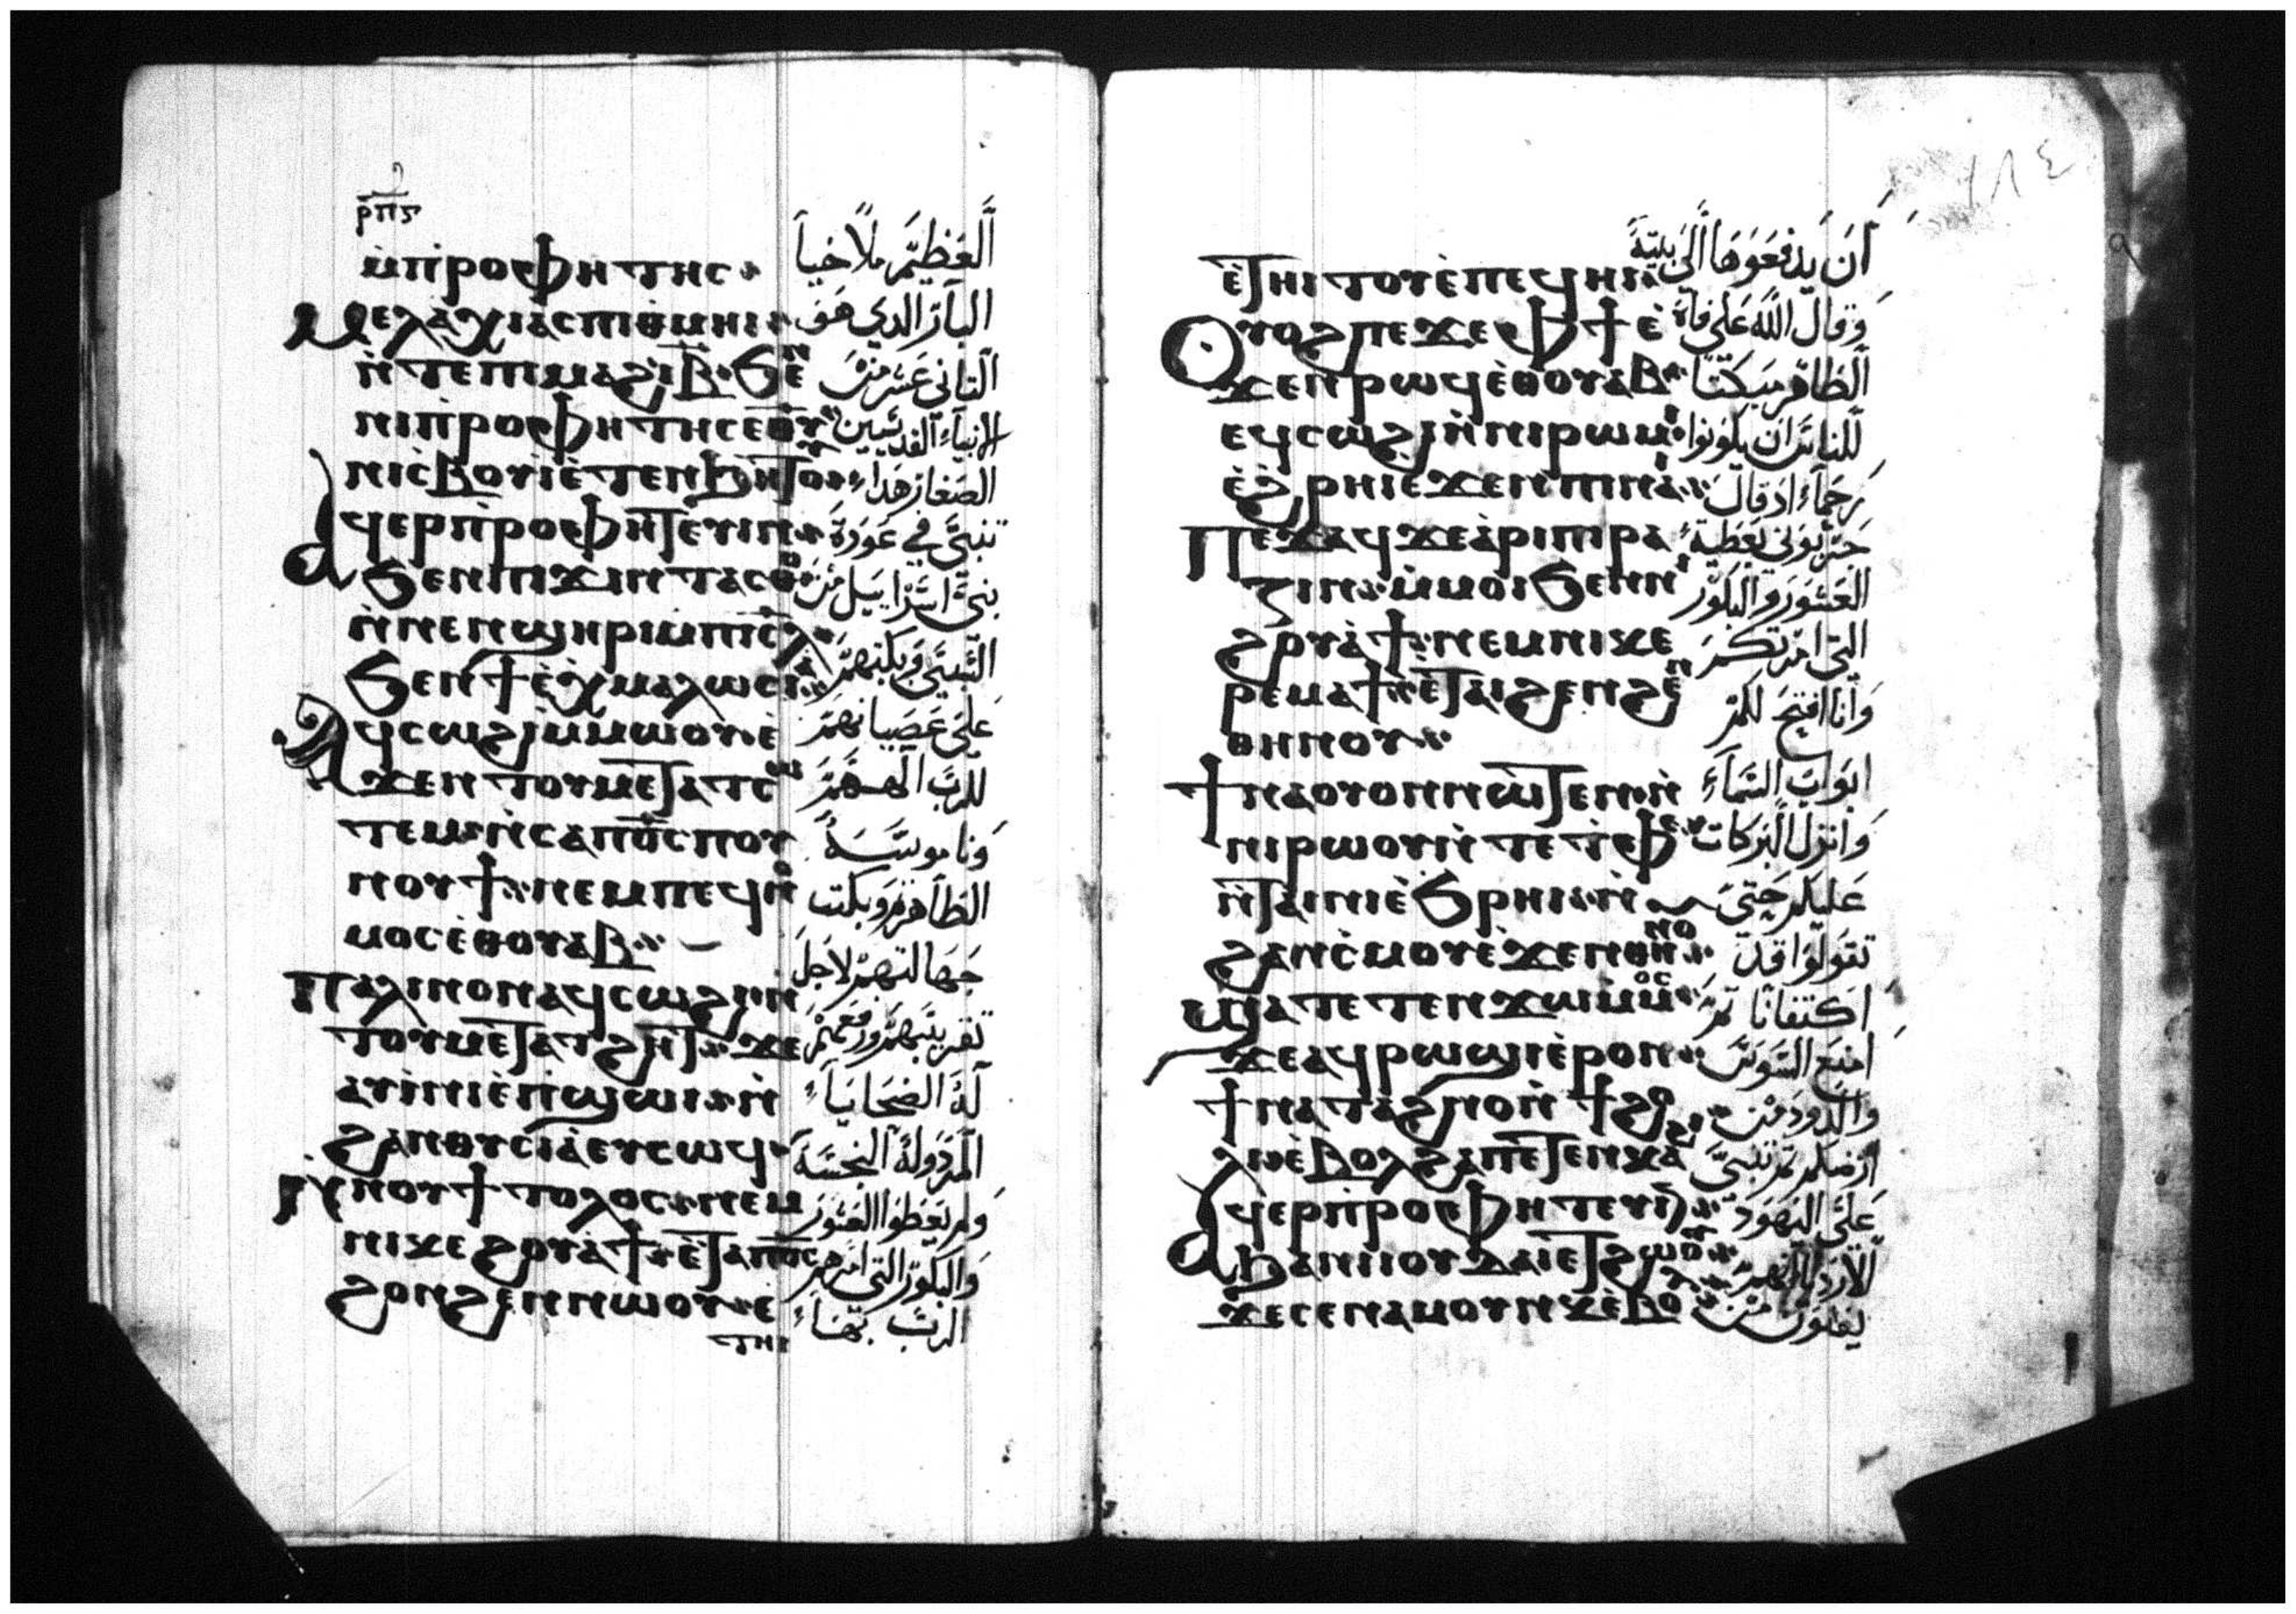 ⲣ̅ⲡ̅ⲋ̅
ⲙ̀ⲡⲣⲟⲫⲏⲧⲏⲥ
ⲙⲉⲗⲁⲭⲓⲁⲥ ⲡⲓⲑⲙⲏⲓ
ⲛ̀ⲧⲉ ⲡⲓⲙⲁϩⲓⲃ̅ ϧⲉⲛ
ⲛⲓⲡ̀ⲣⲟⲫⲏⲧⲏⲥ ⲉⲑⲩ
ⲛⲓⲥ̀ⲃⲟⲩⲓ ⲉ̀ⲧⲉⲛϧⲏⲧⲟⲩ
ⲁϥⲉⲣⲡ̀ⲣⲟⲫⲏⲧⲉⲩⲓⲛ
ϧⲉⲛ ⲡⲓϫⲓⲛⲧⲁⲥⲑⲟ
ⲛ̀ⲛⲉⲛϣⲏⲣⲓ ⲙⲡⲓⲥⲗ
ϧⲉⲛ ϯⲉ̀ⲭⲙⲁⲗⲱⲥⲓⲁ
ⲁϥⲥⲱϩⲓ ⲙ̀ⲙⲱⲟⲩ ⲉ̀
ϫⲉⲛ ⲧⲟⲩⲙⲉⲧⲁⲧⲥⲱ
ⲧⲉⲙ ⲛ̀ⲥⲁ ⲡⲟ̅ⲥ̅ ⲡⲟⲩ
ⲛⲟⲩϯ ⲛⲉⲙ ⲡⲉϥⲛ
ⲙⲟⲥ ⲉ̀ⲑⲟⲩⲁⲃ
ⲡⲁⲗⲓⲛ ⲟⲛ ⲁϥⲥⲱϩⲓ ⲛ
ⲧⲟⲩⲙⲉⲧⲁⲧϩⲏⲧ ϫⲉ
ⲁⲩⲓ̀ⲛⲓ ⲉ̀ⲡ̀ϣⲱⲓ ⲛ̀
ϩⲁⲛⲑⲩⲥⲓⲁ ⲉⲩⲥⲱϥ
ⲙ̀ⲡⲟⲩϯⲧⲟⲗⲟⲥ ⲛⲉⲙ
ⲛⲓⲭⲉϩⲟⲩⲁ̀ϯ ⲉ̀ⲧⲁ ⲡⲟ̅ⲥ̅
ϩⲟⲛϩⲉⲛ ⲛⲱⲟⲩ ⲉ̀
ⲧⲏⲓ
العظيم ملاخيا
البار الدي هو
التاني عشر من
الانبياء القديسين
الصغار هدا
تنبى في عودة
بني اسراييل من
السبى وبكتهم
على عصيانهم
للرب الههم
وناموسه
الطاهر وبكت
جهالتهم لاجل
تقريبهم ورفعهم
له الضحايا
المردولة النجسة
ولم يعطوا العشور
والبكور التي امرهم
الرب بها
ⲉ̀ⲧⲏⲓⲧⲟⲩ ⲉ̀ⲡⲉϥⲏⲓ
ⲟⲩⲟϩ ⲡⲉϫⲉ ⲫϯ ⲉ̀
ϫⲉⲛ ⲣⲱϥ ⲉ̀ⲑⲟⲩⲁⲃ
ⲉϥⲥⲱϩⲓ ⲛ̀ⲛⲓⲣⲱⲙⲓ
ⲉ̀ϩ̀ⲣⲏⲓ ⲉϫⲉⲛ ⲡⲓⲛⲁⲓ
ⲡⲉϫⲁϥ ϫⲉ ⲁ̀ⲣⲓⲡⲓⲣⲁ
ⲍⲓⲛ ⲙ̀ⲙⲟⲓ ϧⲉⲛ ⲛⲓ
ϩⲟⲩⲁ̀ϯ ⲛⲉⲙ ⲛⲓⲭⲉ
ⲣⲉⲙⲁϯ ⲉ̀ⲧⲁⲓϩⲉⲛϩⲉⲛ
ⲑⲏⲛⲟⲩ
ϯⲛⲁⲟⲩⲟⲛ ⲛⲱⲧⲉⲛ ⲛ̀
ⲛⲓⲣⲱⲟⲩ ⲛ̀ⲧⲉ ⲧ̀ⲫⲉ
ⲛ̀ⲧⲁⲓⲛⲓ ⲉ̀ϧⲣⲏⲓ ⲛ̀
ϩⲁⲛⲥ̀ⲙⲟⲩ ⲉ̀ϫⲉⲛ ⲑⲏⲛⲟ
ϣⲁⲧⲉⲧⲉⲛϫⲱ ⲙ̀ⲙⲟⲥ
ϫⲉ ⲁϥⲣⲱϣⲓ ⲉ̀ⲣⲟⲛ
ϯⲛⲁⲧⲁϩⲛⲟ ⲛ̀ϯϩⲟ
ⲗⲓ ⲉ̀ⲃⲟⲗ ϩⲁ ⲡⲉⲧⲉⲛⲕⲁϩⲓ
ⲁϥⲉⲣⲡ̀ⲣⲟⲫⲏⲧⲉⲩⲓⲛ
ϧⲁ ⲛⲓⲓⲟⲩⲇⲁⲓ ⲉⲧϩⲱⲟⲩ
ϫⲉ ⲥⲉⲛⲁⲙⲟⲩⲛⲕ ⲉ̀ⲃⲟⲗ
١٨٤
ان يدفعوها الى بيته
وقال الله على فاه
الطاهر مبكتا
للناس ان يكونوا
رحماء اد قال
جربوني بعطية
العشور والبكور
التى امرتكم
وانا افتح لكم
ابواب السماء
وانزل البركات
عليكم حتى
تقولوا قد
اكتفانا تم
امنع السوس
والدود من
ارضكم تم تنبى
على اليهود
الاردياء انهم
يفنون من